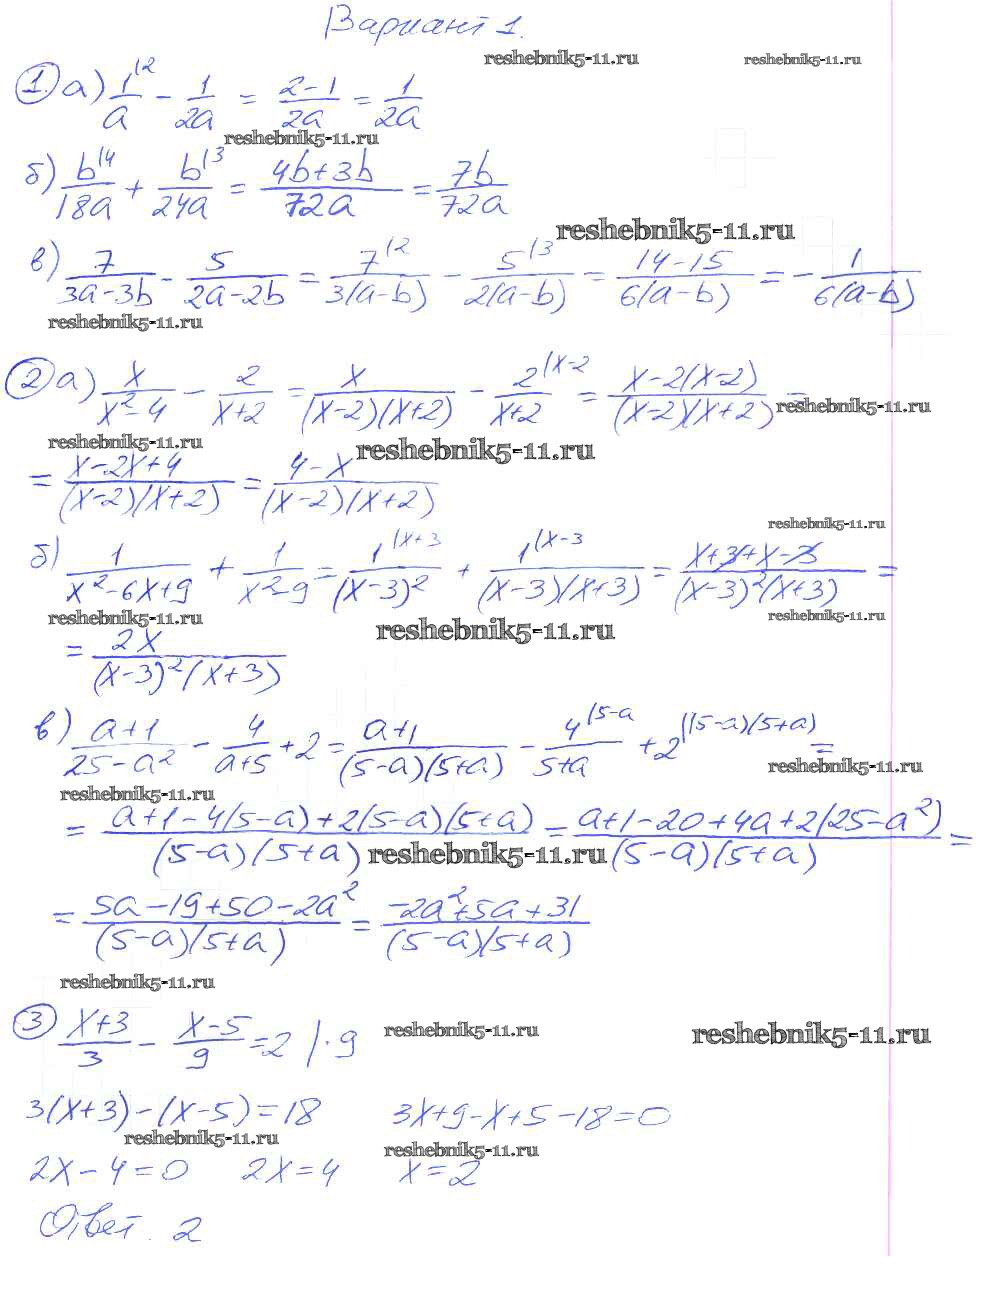 Вариант 1.
reshebnik5-11.ru reshebnik5-11.ru
① а) 1/a |2 - 1/2a = (2-1)/2a = 1/2a
reshebnik5-11.ru
б) b/18a |4 + b/24a |3 = (4b+3b)/72a = 7b/72a
reshebnik5-11.ru
в) 7/(3a-3b) - 5/(2a-2b) = 7/(3(a-b)) |2 - 5/(2(a-b)) |3 = (14-15)/(6(a-b)) = - 1/(6(a-b))
reshebnik5-11.ru
② а) x/(x²-4) - 2/(x+2) = x/((x-2)(x+2)) - 2/(x+2) |x-2 = (x-2(x-2))/((x-2)(x+2)) =
reshebnik5-11.ru
reshebnik5-11.ru reshebnik5-11.ru
= (x-2x+4)/((x-2)(x+2)) = (4-x)/((x-2)(x+2))
reshebnik5-11.ru
б) 1/(x²-6x+9) + 1/(x²-9) = 1/(x-3)² |x+3 + 1/((x-3)(x+3)) |x-3 = (x+3+x-3)/((x-3)²(x+3)) =
reshebnik5-11.ru reshebnik5-11.ru reshebnik5-11.ru
= 2x/((x-3)²(x+3))
в) (a+1)/(25-a²) - 4/(a+5) + 2 = (a+1)/((5-a)(5+a)) - 4/(5+a) |5-a + 2 |(5-a)(5+a) =
reshebnik5-11.ru
reshebnik5-11.ru
= (a+1-4(5-a)+2(5-a)(5+a))/((5-a)(5+a)) = (a+1-20+4a+2(25-a²))/((5-a)(5+a)) =
reshebnik5-11.ru
= (5a-19+50-2a²)/((5-a)(5+a)) = (-2a²+5a+31)/((5-a)(5+a))
reshebnik5-11.ru
③ (x+3)/3 - (x-5)/9 = 2 |·9
reshebnik5-11.ru reshebnik5-11.ru
3(x+3)-(x-5)=18 3x+9-x+5-18=0
reshebnik5-11.ru reshebnik5-11.ru
2x-4=0 2x=4 x=2
Ответ. 2